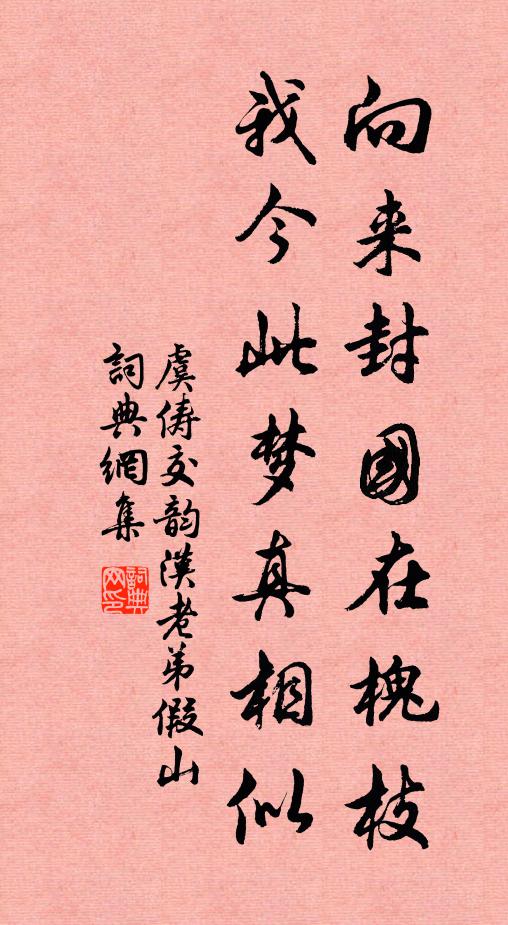 向来封國在槐枝
我今此梦真相似
虞俦次韵漢老弟假山
詞典網集
詞典网印